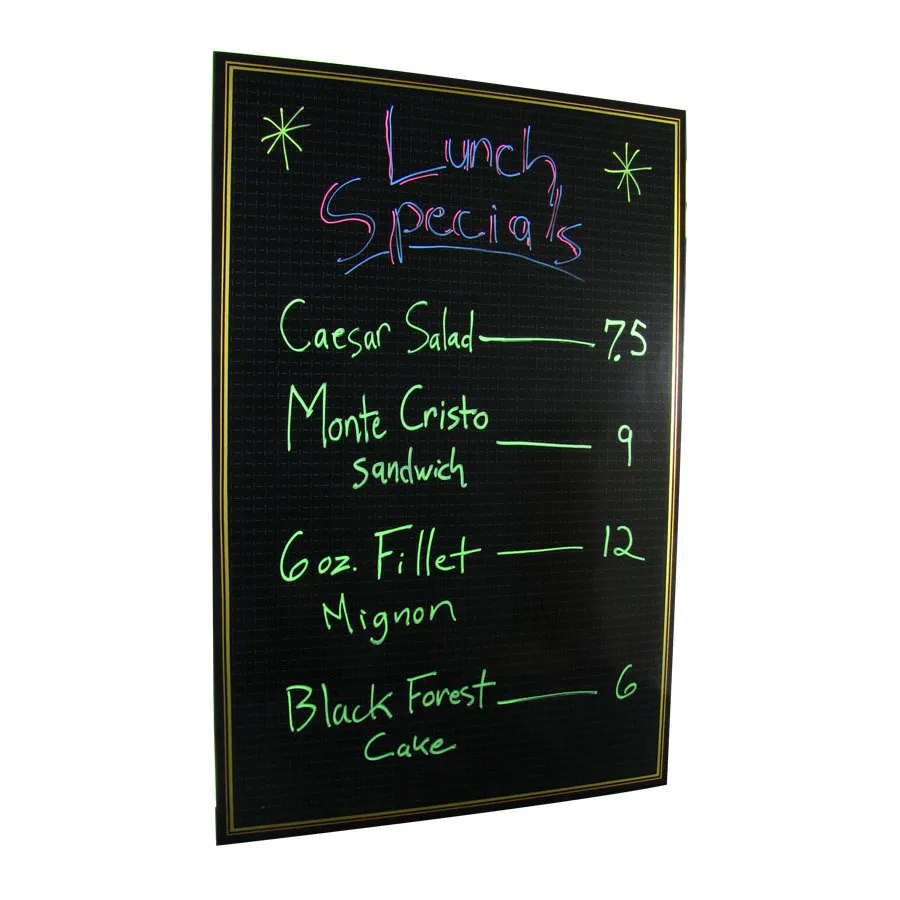 Lunch
Specials
Caesar Salad — 7.5
Monte Cristo — 9
sandwich
6 oz. Fillet — 12
Mignon
Black Forest — 6
Cake